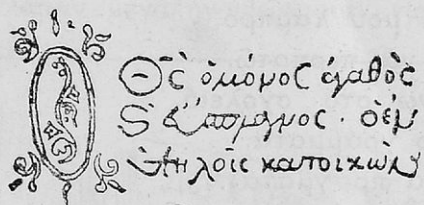 Ὁ Θς ὁ μόνος ἀγαθὸς
ϗ εὔσπλαγχνος · ὁ ἐν
ὑψηλοῖς κατοικῶν